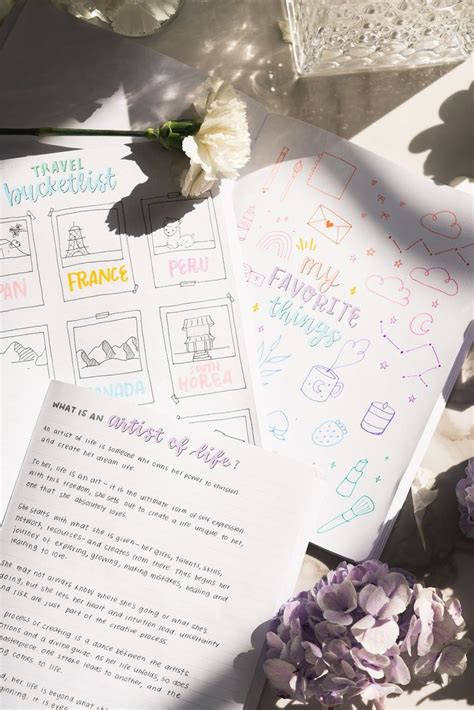 TRAVEL
bucketlist
PAN
FRANCE
PERU
NADA
SOUTH
KOREA
my
FAVORITE
things
WHAT IS AN artist of life?
An artist of life is someone who owns her power to envision
and create her dream life.
To her, life is an art - it is the ultimate form of self expression.
With this freedom, she sets out to create a life unique to her,
one that she absolutely loves.
She starts with what she is given - her gifts, talents, skills,
network, resources - and creates from there. This begins her
journey of exploring, growing, making mistakes, healing and
learning to love.
She may not always know where she's going or what she's
doing, but she lets her heart and intuition lead. Uncertainty
and risk are just part of the creative process.
process of creating is a dance between the artist's
motions and a divine guide. As her life unfolds, so does
masterpiece. One stroke leads to another, and the
ing comes to life.
end, her life is beyond what she
beginning. It is even